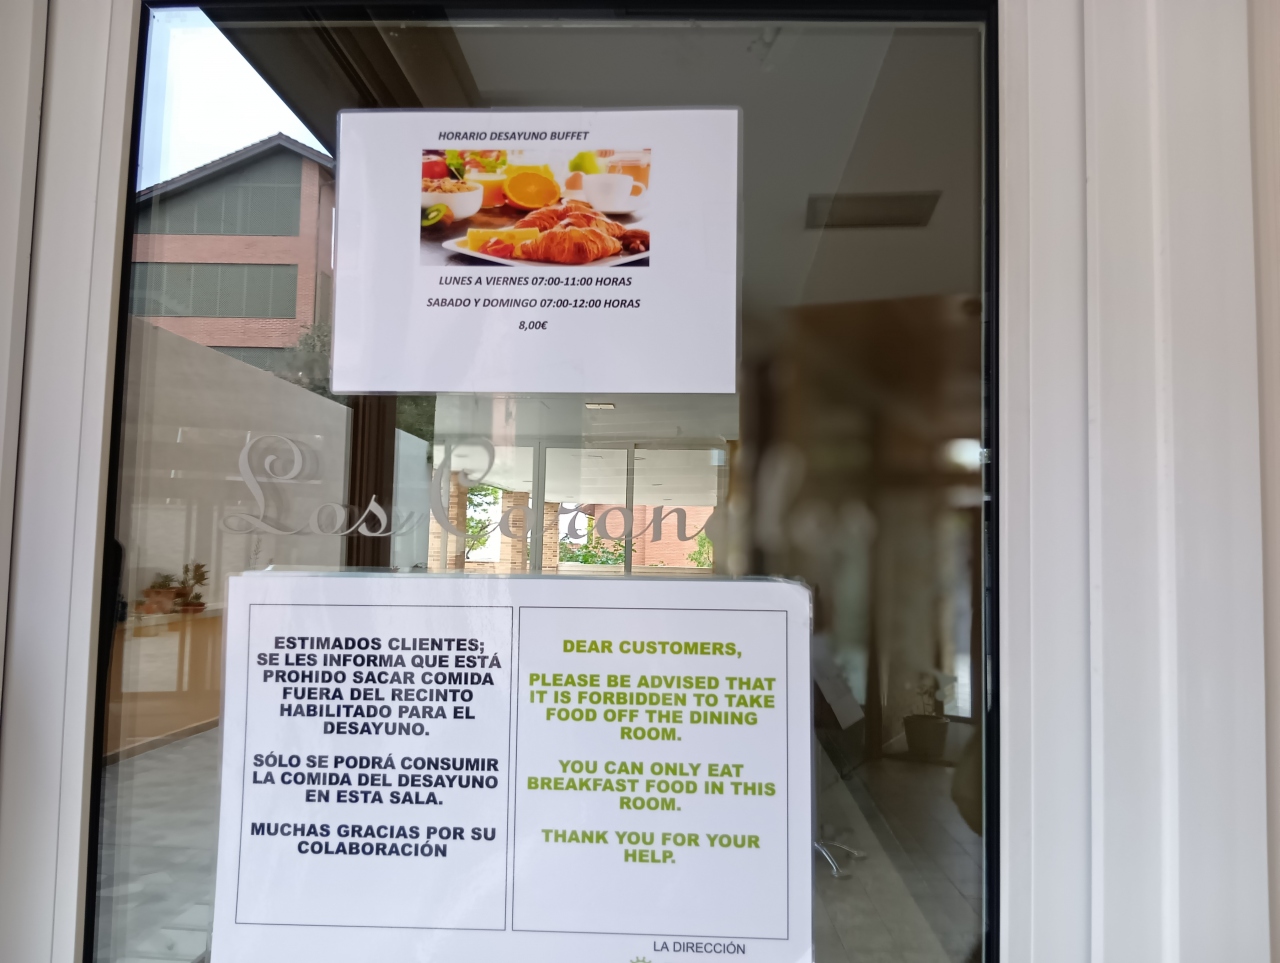 HORARIO DESAYUNO BUFFET
LUNES A VIERNES 07:00-11:00 HORAS
SABADO Y DOMINGO 07:00-12:00 HORAS
8,00€
Los
ESTIMADOS CLIENTES;
SE LES INFORMA QUE ESTÁ
PROHIDO SACAR COMIDA
FUERA DEL RECINTO
HABILITADO PARA EL
DESAYUNO.
SÓLO SE PODRÁ CONSUMIR
LA COMIDA DEL DESAYUNO
EN ESTA SALA.
MUCHAS GRACIAS POR SU
COLABORACIÓN
DEAR CUSTOMERS,
PLEASE BE ADVISED THAT
IT IS FORBIDDEN TO TAKE
FOOD OFF THE DINING
ROOM.
YOU CAN ONLY EAT
BREAKFAST FOOD IN THIS
ROOM.
THANK YOU FOR YOUR
HELP.
LA DIRECCIÓN